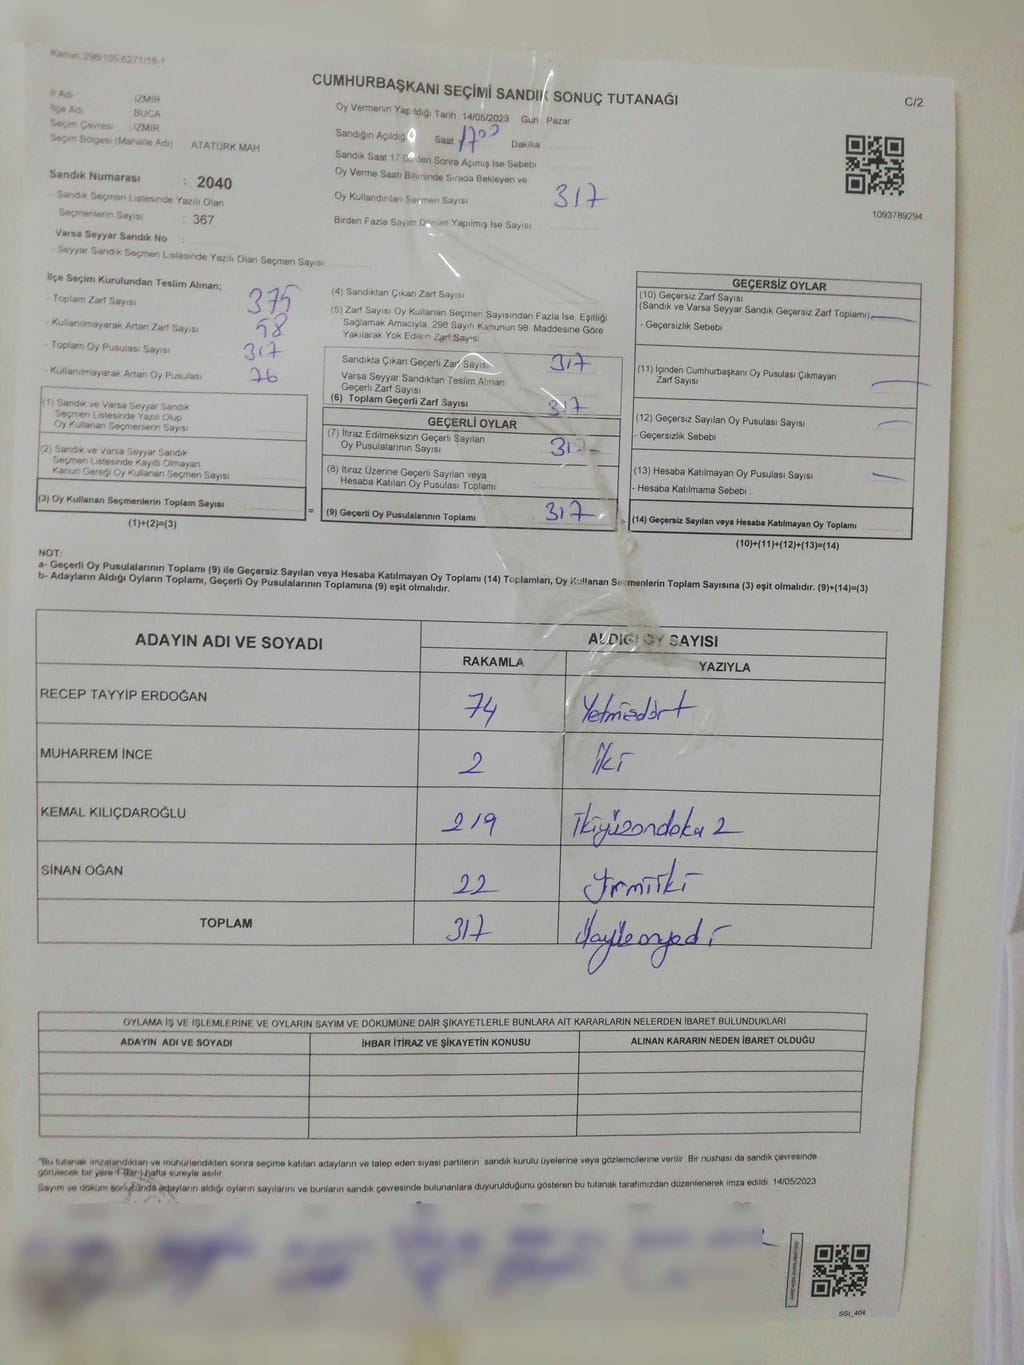 Kanun.298/105.6271/18-1
CUMHURBAŞKANI SEÇİMİ SANDIK SONUÇ TUTANAĞI
C/2
İl Adı İZMİR
İlçe Adı BUCA
Seçim Çevresi : İZMİR
Seçim Bölgesi (Mahalle Adı) ATATÜRK MAH.
Sandık Numarası : 2040
- Sandık Seçmen Listesinde Yazılı Olan
Seçmenlerin Sayısı : 367
Varsa Seyyar Sandık No :
- Seyyar Sandık Seçmen Listesinde Yazılı Olan Seçmen Sayısı
Oy Vermenin Yapıldığı Tarih : 14/05/2023 Gün : Pazar
Sandığın Açıldığı Saat 17 00 Dakika
Sandık Saat 17:00'den Sonra Açılmış İse Sebebi
Oy Verme Saati Bitiminde Sırada Bekleyen ve
Oy Kullandırılan Seçmen Sayısı 317
Birden Fazla Sayım Döküm Yapılmış İse Sayısı
1093789294
İlçe Seçim Kurulundan Teslim Alınan;
- Toplam Zarf Sayısı 375
- Kullanılmayarak Artan Zarf Sayısı 58
- Toplam Oy Pusulası Sayısı 317
- Kullanılmayarak Artan Oy Pusulası 76
(1) Sandık ve Varsa Seyyar Sandık
Seçmen Listesinde Yazılı Olup
Oy Kullanan Seçmenlerin Sayısı
(2) Sandık ve Varsa Seyyar Sandık
Seçmen Listesinde Kayıtlı Olmayan
Kanun Gereği Oy Kullanan Seçmen Sayısı
(3) Oy Kullanan Seçmenlerin Toplam Sayısı
(1)+(2)=(3)
=
(4) Sandıktan Çıkan Zarf Sayısı
(5) Zarf Sayısı Oy Kullanan Seçmen Sayısından Fazla İse, Eşitliği
Sağlamak Amacıyla, 298 Sayılı Kanunun 98. Maddesine Göre
Yakılarak Yok Edilen Zarf Sayısı
Sandıkta Çıkan Geçerli Zarf Sayısı 317
Varsa Seyyar Sandıktan Teslim Alınan
Geçerli Zarf Sayısı
(6) Toplam Geçerli Zarf Sayısı 317
GEÇERLİ OYLAR
(7) İtiraz Edilmeksizin Geçerli Sayılan
Oy Pusulalarının Sayısı 317
(8) İtiraz Üzerine Geçerli Sayılan veya
Hesaba Katılan Oy Pusulası Toplamı
(9) Geçerli Oy Pusulalarının Toplamı 317
GEÇERSİZ OYLAR
(10) Geçersiz Zarf Sayısı
(Sandık ve Varsa Seyyar Sandık Geçersiz Zarf Toplamı)
- Geçersizlik Sebebi
(11) İçinden Cumhurbaşkanı Oy Pusulası Çıkmayan
Zarf Sayısı
(12) Geçersiz Sayılan Oy Pusulası Sayısı
- Geçersizlik Sebebi
(13) Hesaba Katılmayan Oy Pusulası Sayısı
- Hesaba Katılmama Sebebi :
(14) Geçersiz Sayılan veya Hesaba Katılmayan Oy Toplamı
(10)+(11)+(12)+(13)=(14)
NOT:
a- Geçerli Oy Pusulalarının Toplamı (9) ile Geçersiz Sayılan veya Hesaba Katılmayan Oy Toplamı (14) Toplamları, Oy Kullanan Seçmenlerin Toplam Sayısına (3) eşit olmalıdır. (9)+(14)=(3)
b- Adayların Aldığı Oyların Toplamı, Geçerli Oy Pusulalarının Toplamına (9) eşit olmalıdır.
ADAYIN ADI VE SOYADI ALDIĞI OY SAYISI
RAKAMLA YAZIYLA
RECEP TAYYİP ERDOĞAN 74 Yetmişdört
MUHARREM İNCE 2 iki
KEMAL KILIÇDAROĞLU 219 ikiyüzondoku2
SİNAN OĞAN 22 yirmiiki
TOPLAM 317 üçyüzonyedi
OYLAMA İŞ VE İŞLEMLERİNE VE OYLARIN SAYIM VE DÖKÜMÜNE DAİR ŞİKAYETLERLE BUNLARA AİT KARARLARIN NELERDEN İBARET BULUNDUKLARI
ADAYIN ADI VE SOYADI İHBAR İTİRAZ VE ŞİKAYETİN KONUSU ALINAN KARARIN NEDEN İBARET OLDUĞU
"Bu tutanak imzalandıktan ve mühürlendikten sonra seçime katılan adayların ve talep eden siyasi partilerin sandık kurulu üyelerine veya gözlemcilerine verilir. Bir nüshası da sandık çevresinde
görülecek bir yere 1 (Bir) hafta süreyle asılır.
Sayım ve döküm sonucunda adayların aldığı oyların sayılarını ve bunların sandık çevresinde bulunanlara duyurulduğunu gösteren bu tutanak tarafımızdan düzenlenerek imza edildi. 14/05/2023
SSI_404